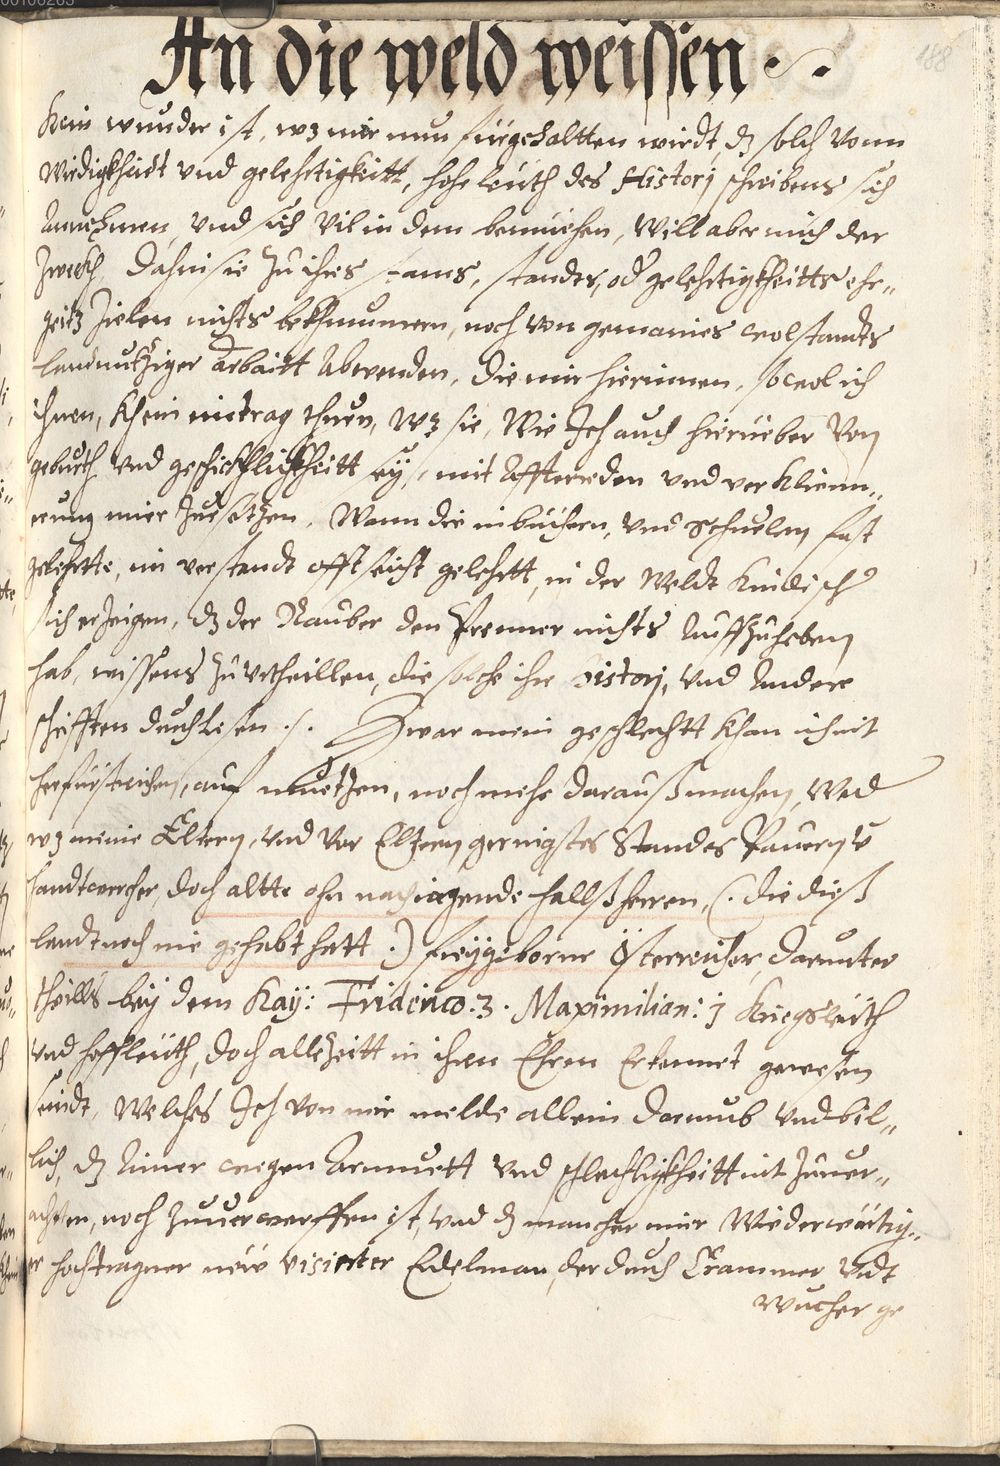 00100263
188
An die weld weissen
Kein wunder ist, wz mir nun fürgehaltten wirdt, dz solch vonn
Wirdigkhaitt vnd gelehrtigkaitt, hohe leüth des Historj schreibens sich
Annehmen, vnd sich vil in dem bemüehen, Will aber mich der
Zwekh, dahin sie zu ihres stams, standes, od gelehrtigkheitts ehr„
geitz Zielen nichts bekhmumern, noch von gemaines wolstandts
landnutziger Arbaitt Abwenden, die mir hierinnen, sowol ich
ihnen, Khein eintrag thuen, Wz sie, Wie Ich auch hierüeber Von
geburth vnd geschickhlichkheitt ey, mit Affterreden vnd verkliene„
rung mier Zuesetzen, Wann die in büchern, vnd Schuelen fast
gelehrtte, im verstandt offt leicht gelehrtt, in der Weldt Kindisch
sich erzeigen, dz der Rauber den Prenner nichts Auffzuheben
hab, wissens zu vrtheillen, die solche ihr Historj, vnd Andere
schrifften durchlesen ./. Zwar mein geschlechtt Khan ich nit
herfürstreichen, auf muetzen, noch mehr darauß machen, Wed
wz meine Eltern, vnd vor Eltern geringstes Standes Pauern v̈
handtwercher, doch altte ohn nachiagende hallßherren, (. die dieß
landt noch nie gehabt hatt .) freygeborne Österreicher, darunter
theills bey dem Kay: Friderico. 3. Maximilian: j Kriegsleüth
vnd hoffleüth, doch allezeitt in ihren Ehren Erkennet gewesen
seindt, Welches Ich von mir melde allein darumb vnd bil„
lich, dz Ainer wegen Armuett vnd schlechtigkheitt nit Zuuer„
achten, noch Zuuerwerffen ist, vnd dz mancher mier Wiederwärtig„
er hochtragner new visierter Edelman, der durch Crammer vndt
wucher ge